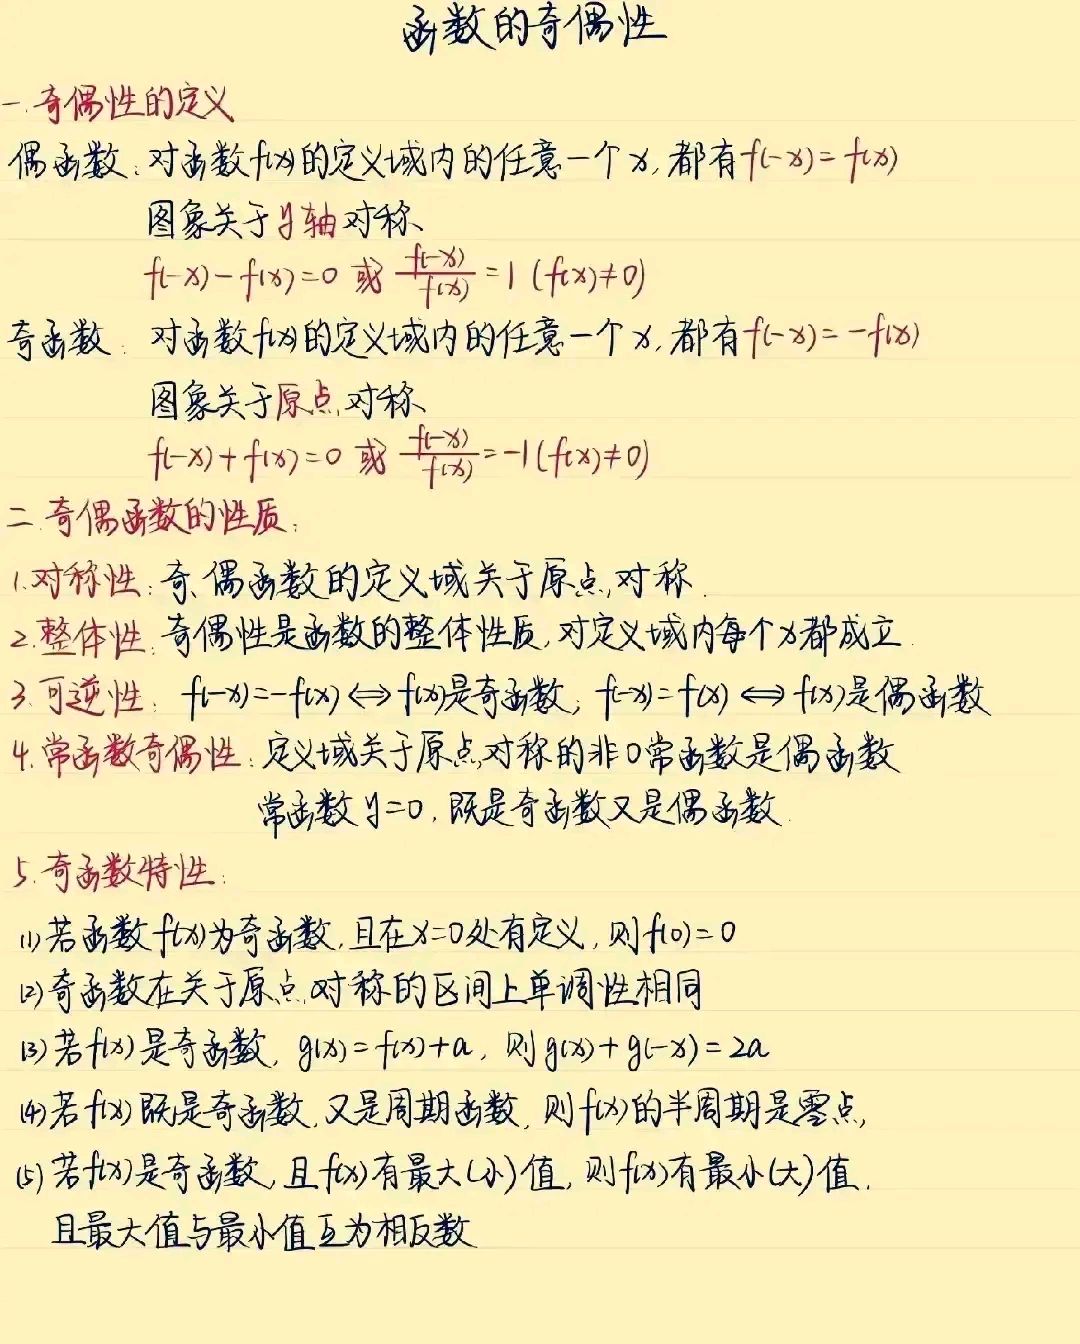 函数的奇偶性
一.奇偶性的定义
偶函数:对函数f(x)的定义域内的任意一个x,都有f(-x)=f(x)
图象关于y轴对称
f(-x)-f(x)=0 或 f(-x)/f(x)=1 (f(x)≠0)
奇函数:对函数f(x)的定义域内的任意一个x,都有f(-x)=-f(x)
图象关于原点对称
f(-x)+f(x)=0 或 f(-x)/f(x)=-1(f(x)≠0)
二.奇偶函数的性质:
1.对称性:奇、偶函数的定义域关于原点对称.
2.整体性:奇偶性是函数的整体性质,对定义域内每个x都成立.
3.可逆性: f(-x)=-f(x)⇔f(x)是奇函数; f(-x)=f(x)⇔f(x)是偶函数
4.常函数奇偶性:定义域关于原点对称的非0常函数是偶函数
常函数y=0,既是奇函数又是偶函数.
5.奇函数特性:
(1)若函数f(x)为奇函数,且在x=0处有定义,则f(0)=0
(2)奇函数在关于原点对称的区间上单调性相同
(3)若f(x)是奇函数, g(x)=f(x)+a, 则g(x)+g(-x)=2a
(4)若f(x)既是奇函数,又是周期函数,则f(x)的半周期是零点,
(5)若f(x)是奇函数,且f(x)有最大(小)值,则f(x)有最小(大)值.
且最大值与最小值互为相反数